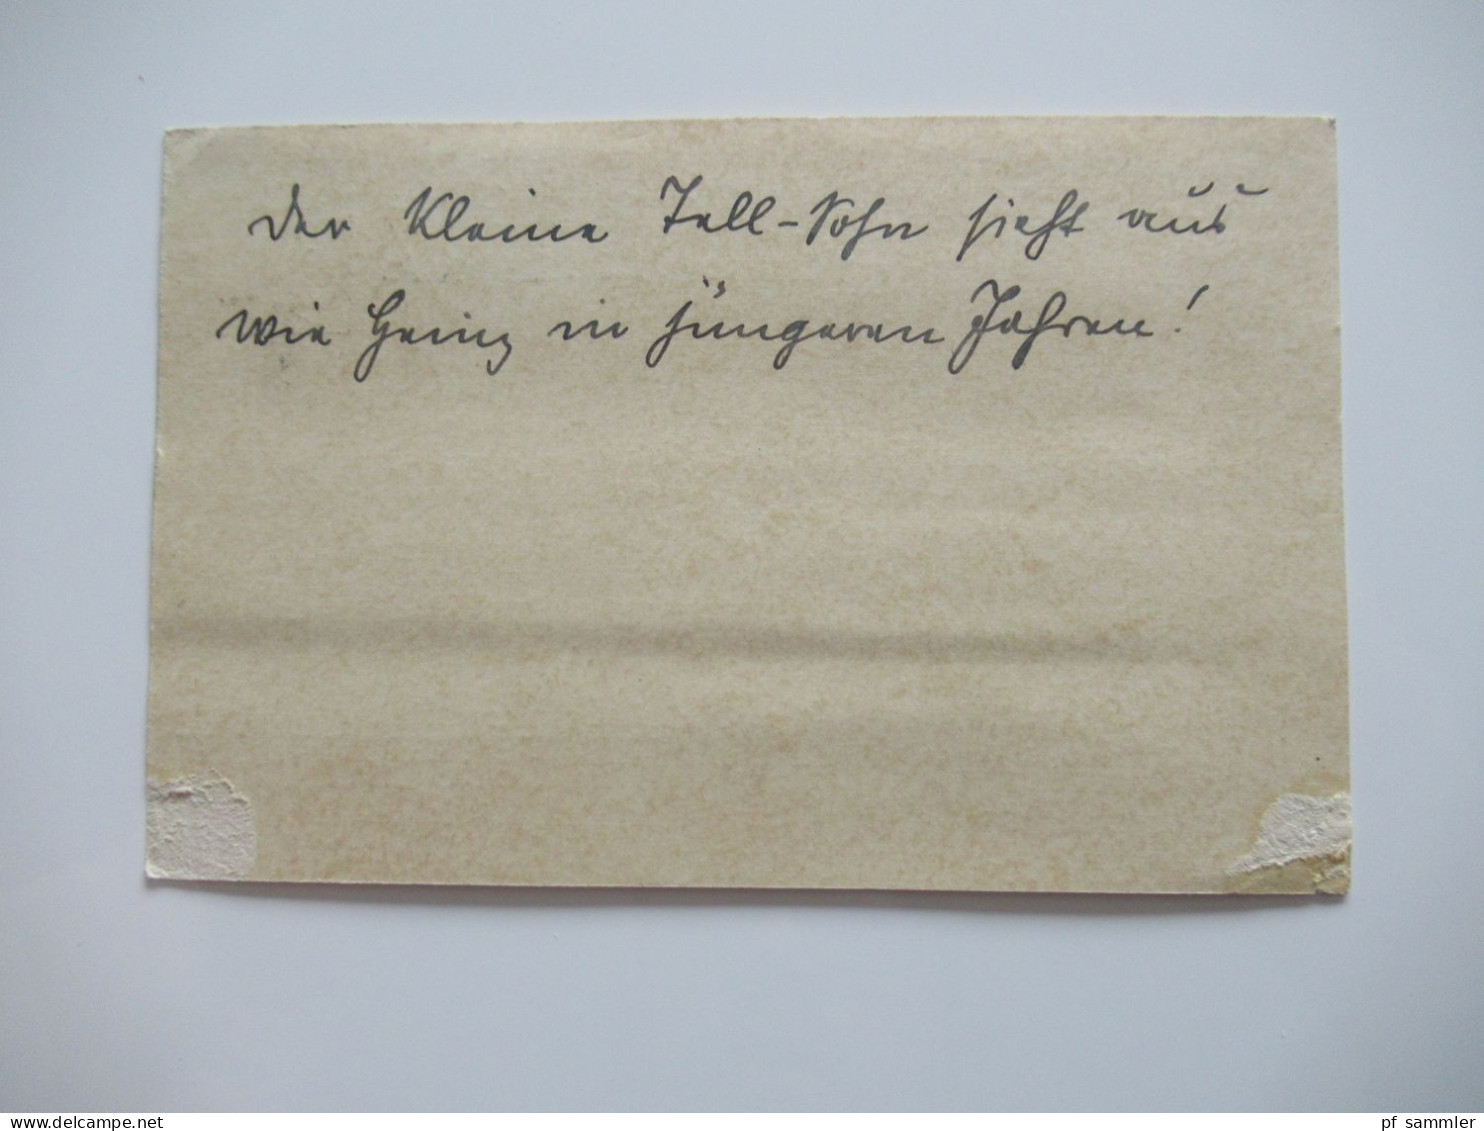 Der kleine Tell-Sohn sieht aus
wie Heinz in jüngeren Jahren!
pf sammler
delcampe.net